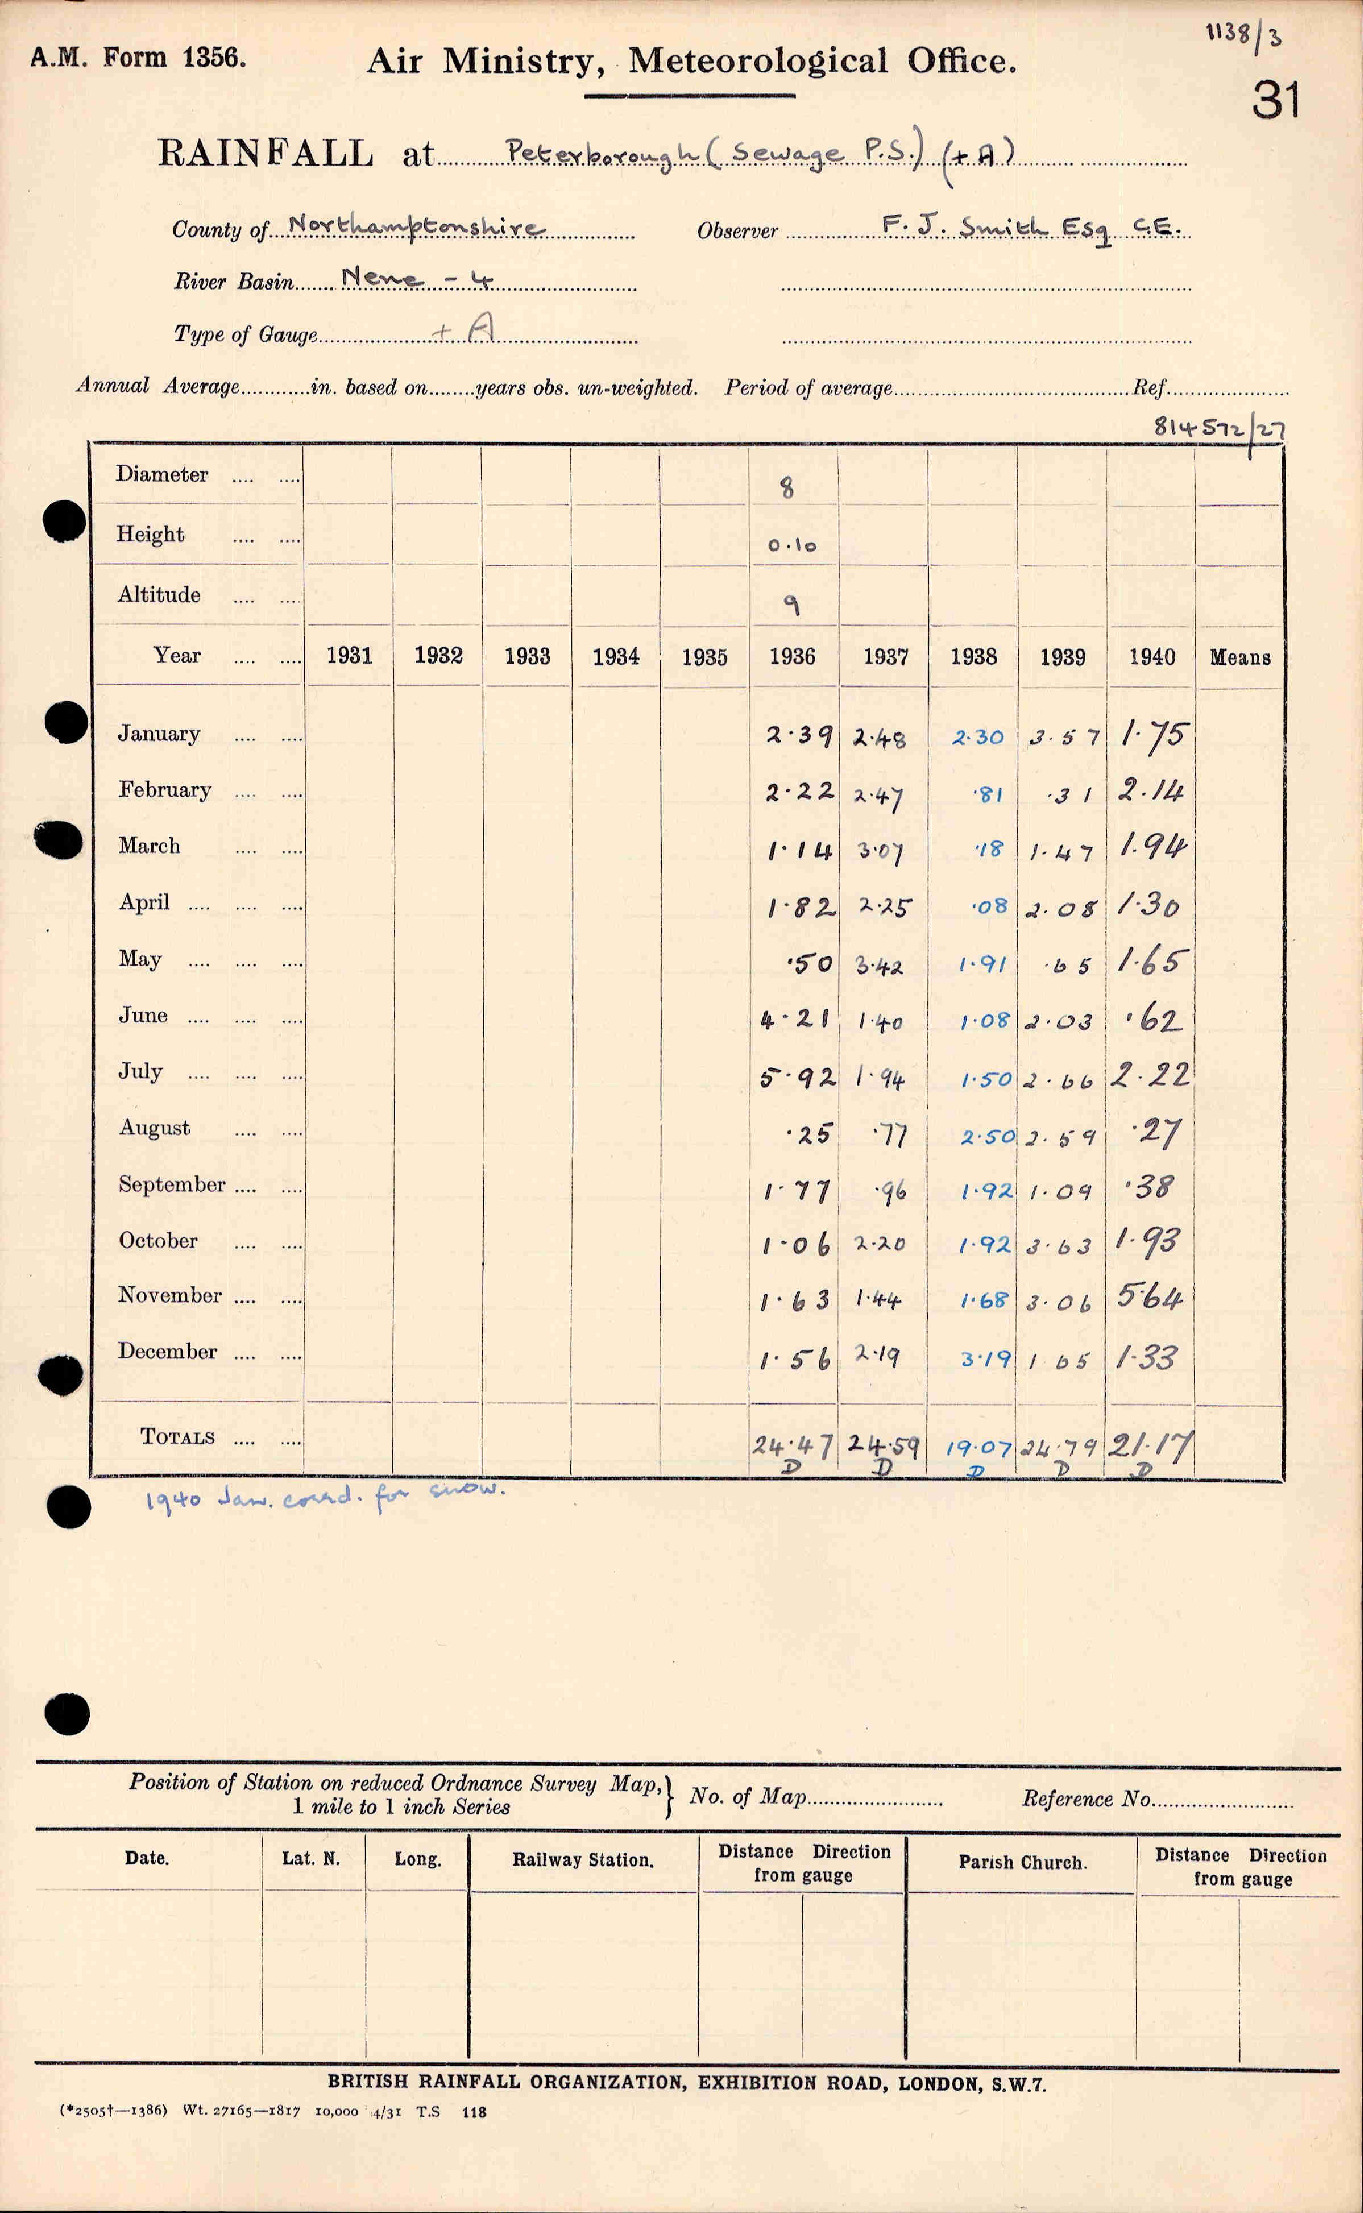 1138/3
A.M. Form 1356. Air Ministry, Meteorological Office.
31
RAINFALL at Peterborough (Sewage P.S.) (+A)
County of Northamptonshire Observer F. J. Smith Esq C.E.
River Basin Nene - 4
Type of Gauge + A
Annual Average in. based on years obs. un-weighted. Period of average Ref.
814572/27
Diameter 8
Height 0.10
Altitude 9
Year 1931 1932 1933 1934 1935 1936 1937 1938 1939 1940 Means
January 2.39 2.48 2.30 3.57 1.75
February 2.22 2.47 .81 .31 2.14
March 1.14 3.07 .18 1.47 1.94
April 1.82 2.25 .08 2.08 1.30
May .50 3.42 1.91 .65 1.65
June 4.21 1.40 1.08 2.03 .62
July 5.92 1.94 1.50 2.66 2.22
August .25 .77 2.50 2.59 .27
September 1.77 .96 1.92 1.09 .38
October 1.06 2.20 1.92 3.63 1.93
November 1.63 1.44 1.68 3.06 5.64
December 1.56 2.19 3.19 1 65 1.33
TOTALS 24.47 24.59 19.07 24.79 21.17
D D D D D
1940 Jan. corrd. for snow.
Position of Station on reduced Ordnance Survey Map, } No. of Map Reference No.
1 mile to 1 inch Series
Date. Lat. N. Long. Railway Station. Distance Direction from gauge Parish Church. Distance Direction from gauge
BRITISH RAINFALL ORGANIZATION, EXHIBITION ROAD, LONDON, S.W.7.
(*2505†—1386) Wt. 27165—1817 10,000 4/31 T.S 118